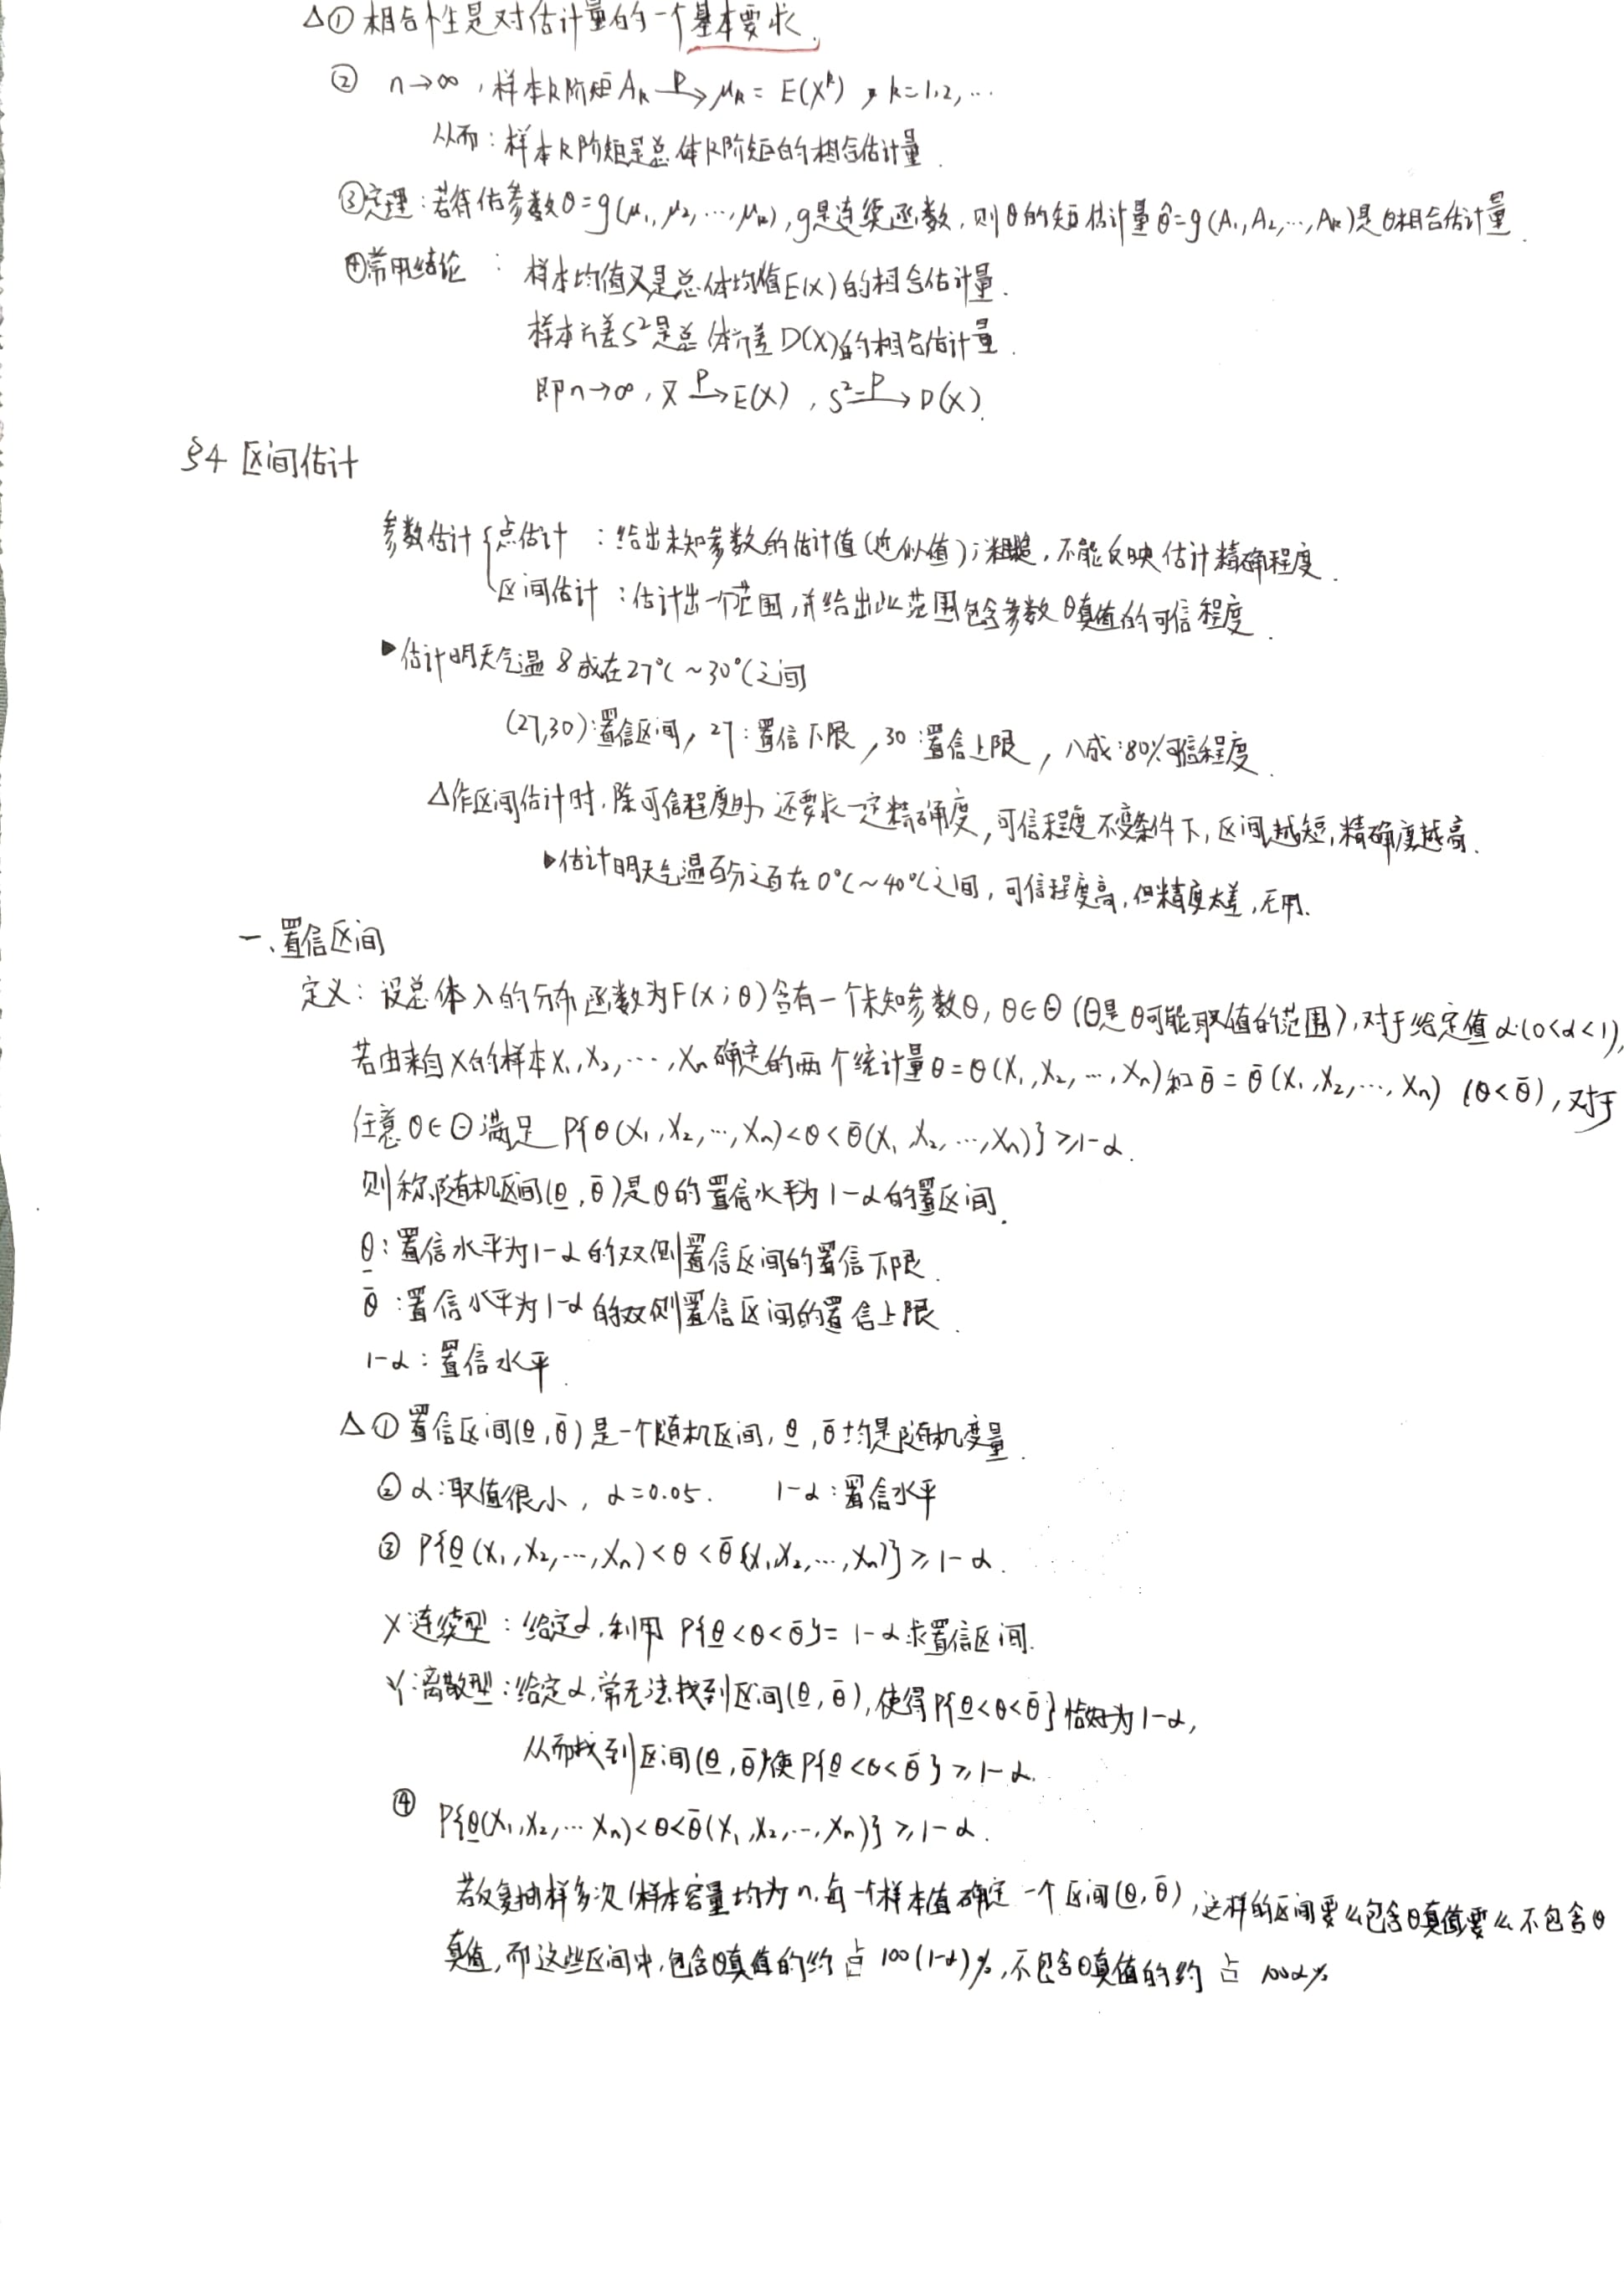 △① 相合性是对估计量的一个基本要求.
② n→∞, 样本k阶矩 Aₖ —P→ μₖ = E(Xᵏ), k=1,2,…
从而: 样本k阶矩是总体k阶矩的相合估计量.
③定理: 若待估参数θ=g(μ₁,μ₂,…,μₖ), g是连续函数, 则θ的矩估计量 θ̂=g(A₁,A₂,…,Aₖ)是θ相合估计量.
④常用结论: 样本均值X̄是总体均值E(X)的相合估计量.
样本方差S²是总体方差D(X)的相合估计量.
即n→∞, X̄ —P→ E(X), S² —P→ D(X).
§4 区间估计
参数估计{点估计: 给出未知参数的估计值(近似值); 粗糙, 不能反映估计精确程度.
区间估计: 估计出一个范围, 并给出此范围包含参数θ真值的可信程度.
▶估计明天气温8成在27℃~30℃之间
(27,30):置信区间, 27:置信下限, 30:置信上限, 八成:80%可信程度.
△作区间估计时, 除可信程度外, 还要求一定精确度, 可信程度不变条件下, 区间越短, 精确度越高.
▶估计明天气温百分之百在0℃~40℃之间, 可信程度高, 但精度太差, 无用.
一、置信区间
定义: 设总体X的分布函数为F(x;θ)含有一个未知参数θ, θ∈Θ (Θ是θ可能取值的范围), 对于给定值α(0<α<1),
若由来自X的样本X₁,X₂,…,Xₙ确定的两个统计量θ=θ(X₁,X₂,…,Xₙ)和θ̄=θ̄(X₁,X₂,…,Xₙ) (θ<θ̄), 对于
任意θ∈Θ满足 P{θ(X₁,X₂,…,Xₙ)<θ<θ̄(X₁,X₂,…,Xₙ)}≥1-α.
则称随机区间(θ̲,θ̄)是θ的置信水平为1-α的置区间.
θ̲: 置信水平为1-α的双侧置信区间的置信下限.
θ̄: 置信水平为1-α的双侧置信区间的置信上限.
1-α: 置信水平.
△① 置信区间(θ̲,θ̄)是一个随机区间, θ̲,θ̄均是随机变量.
② α:取值很小, α=0.05. 1-α:置信水平
③ P{θ̲(X₁,X₂,…,Xₙ)<θ<θ̄(X₁,X₂,…,Xₙ)}≥1-α.
X连续型: 给定α, 利用 P{θ̲<θ<θ̄}=1-α求置信区间.
X离散型: 给定α, 常无法找到区间(θ̲,θ̄), 使得P{θ̲<θ<θ̄}恰好为1-α,
从而找到区间(θ̲,θ̄)使P{θ̲<θ<θ̄}≥1-α.
④ P{θ̲(X₁,X₂,…Xₙ)<θ<θ̄(X₁,X₂,…,Xₙ)}≥1-α.
若反复抽样多次(样本容量均为n, 每一个样本值确定一个区间(θ̲,θ̄), 这样的区间要么包含θ真值要么不包含θ
真值, 而这些区间中, 包含θ真值的约占100(1-α)%, 不包含θ真值的约占100α%